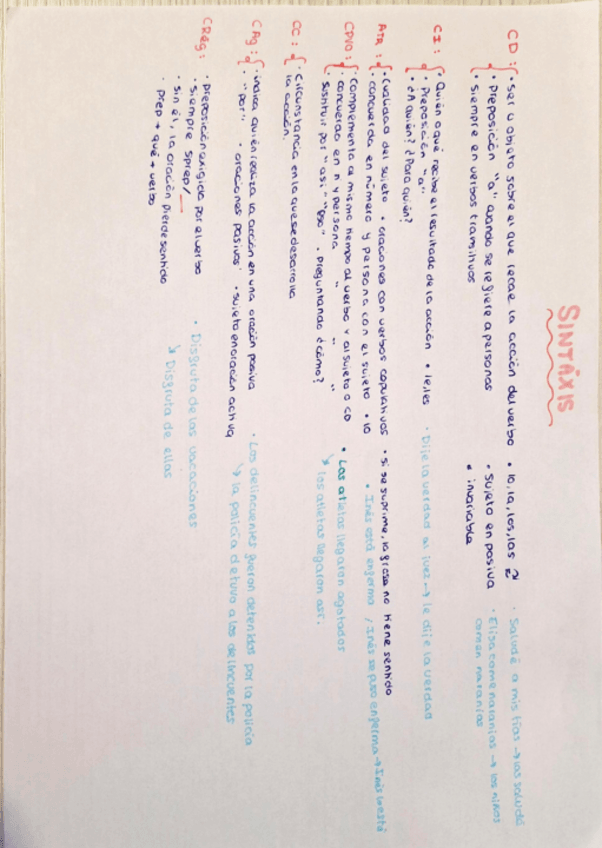 SINTÁXIS
CD: · Ser u objeto sobre el que recae la acción del verbo · lo, la, los, las · Saludé a mis tías → las saludé
· Preposición "a" cuando se refiere a personas · Sujeto en pasiva · Elisa come naranjas → los niños
· Siempre en verbos transitivos · invariable comen naranjas
CI: · Quién o qué recibe el resultado de la acción · le, les · Dije la verdad al juez → le dije la verdad
· Preposición "a"
· ¿A quién? ¿Para quién?
Atr: · Cualidad del sujeto · oraciones con verbos copulativos · si se suprime, la frase no tiene sentido
· concuerda en número y persona con el sujeto · lo · Inés está enferma / Inés se puso enferma → Inés lo está
CPVO: · Complementa a mismo tiempo al verbo y al sujeto o CD · Los atletas llegaron agotados
· concuerdo en n y persona " " " ↘ los atletas llegaron así.
· Sustituir por "así" "eso" · Preguntando ¿cómo?
CC: · Circunstancia en la que se desarrolla
la acción.
CAg: · Indica quién realiza la acción en una oración pasiva · Los delincuentes fueron detenidos por la policía
· "por" · oraciones pasivas · sujeto en oración activa ↘ la policía detuvo a los delincuentes
CRég: · preposición exigida por el verbo · Disfruta de las vacaciones
· siempre sprep/ ↘ Disfruta de ellas
· sin él, la oración pierde sentido
· prep + qué + verbo